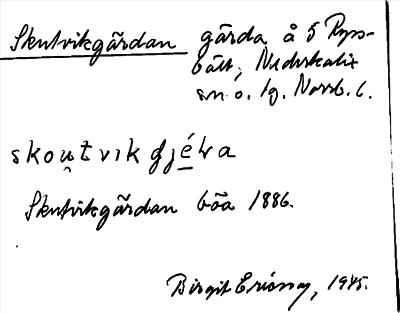 Skutvikgärdan gärda å 5 Ryss-
bält, Nederkalix
sn o. lg. Norrb. l.
skou̯tvɩkgjé̱ɽa
Skutvikgärdan böa 1886.
Birgit Ericson, 1945.